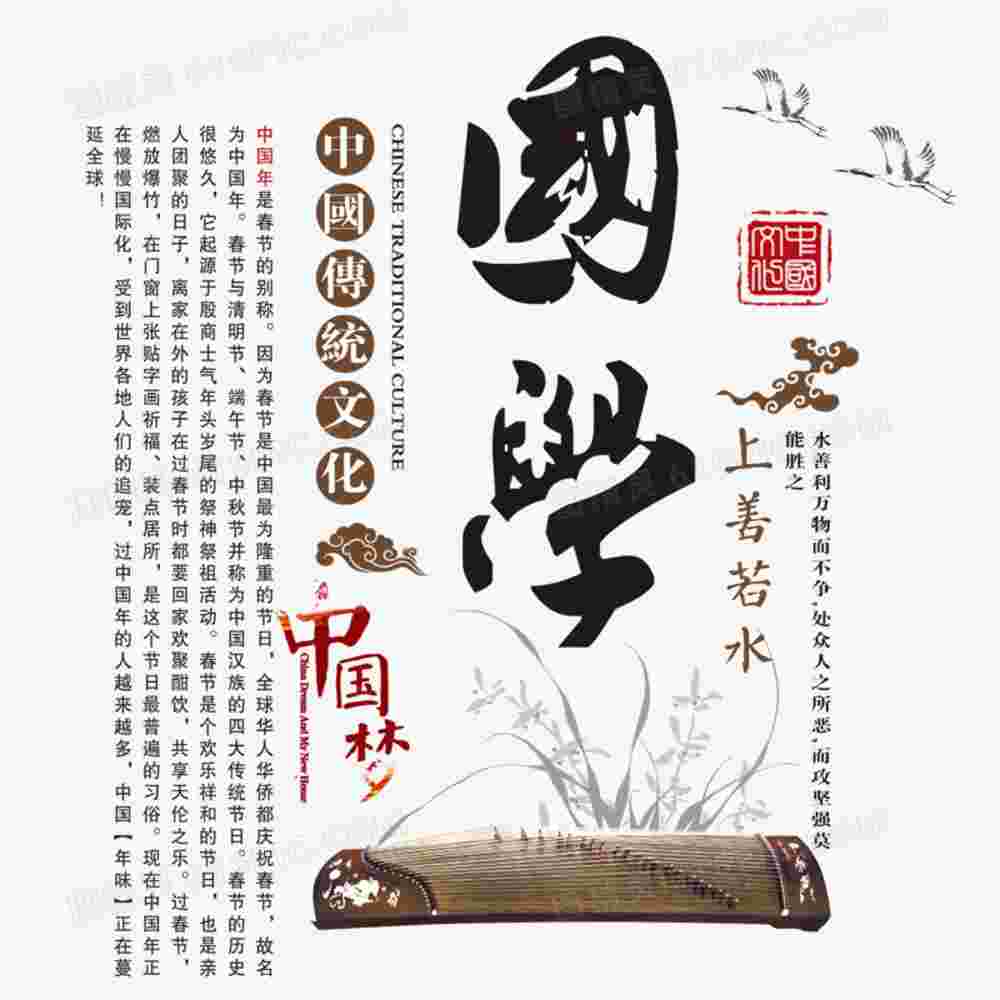 國學
中國文化
上善若水
水善利万物而不争,处众人之所恶,而攻坚强莫
能胜之
CHINESE TRADITIONAL CULTURE
中國傳統文化
中国梦
China Dream And My New Home
中国年是春节的别称。因为春节是中国最为隆重的节日，全球华人华侨都庆祝春节，故名
为中国年。春节与清明节、端午节、中秋节并称为中国汉族的四大传统节日。春节的历史
很悠久，它起源于殷商士气年头岁尾的祭神祭祖活动。春节是个欢乐祥和的节日，也是亲
人团聚的日子，离家在外的孩子在过春节时都要回家欢聚酣饮，共享天伦之乐。过春节，
燃放爆竹，在门窗上张贴字画祈福、装点居所，是这个节日最普遍的习俗。现在中国年正
在慢慢国际化，受到世界各地人们的追宠，过中国年的人越来越多，中国【年味】正在蔓
延全球！